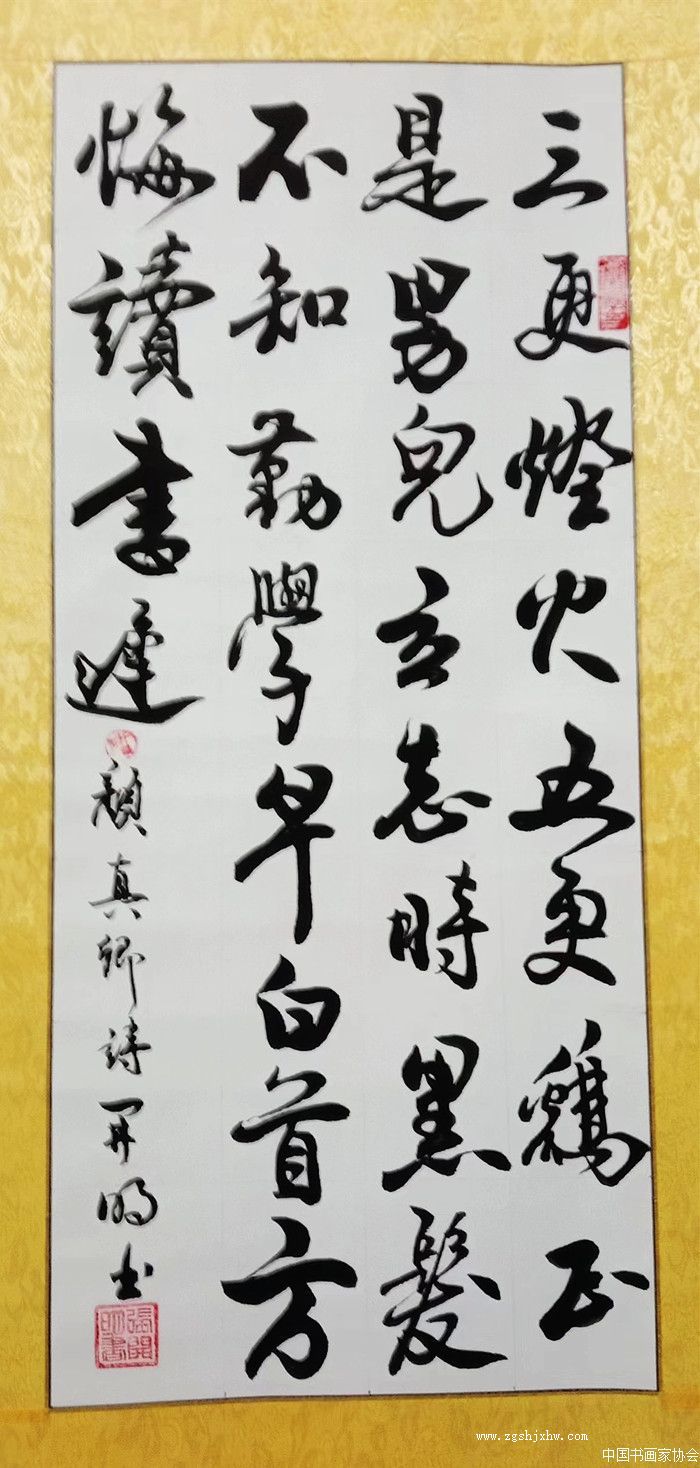 三更燈火五更鷄正
是男兒立志時黑髮
不知勤學早白首方
悔讀書遲
顏真卿詩開明书
張開明書
www.zgshjxhw.com
中国书画家协会